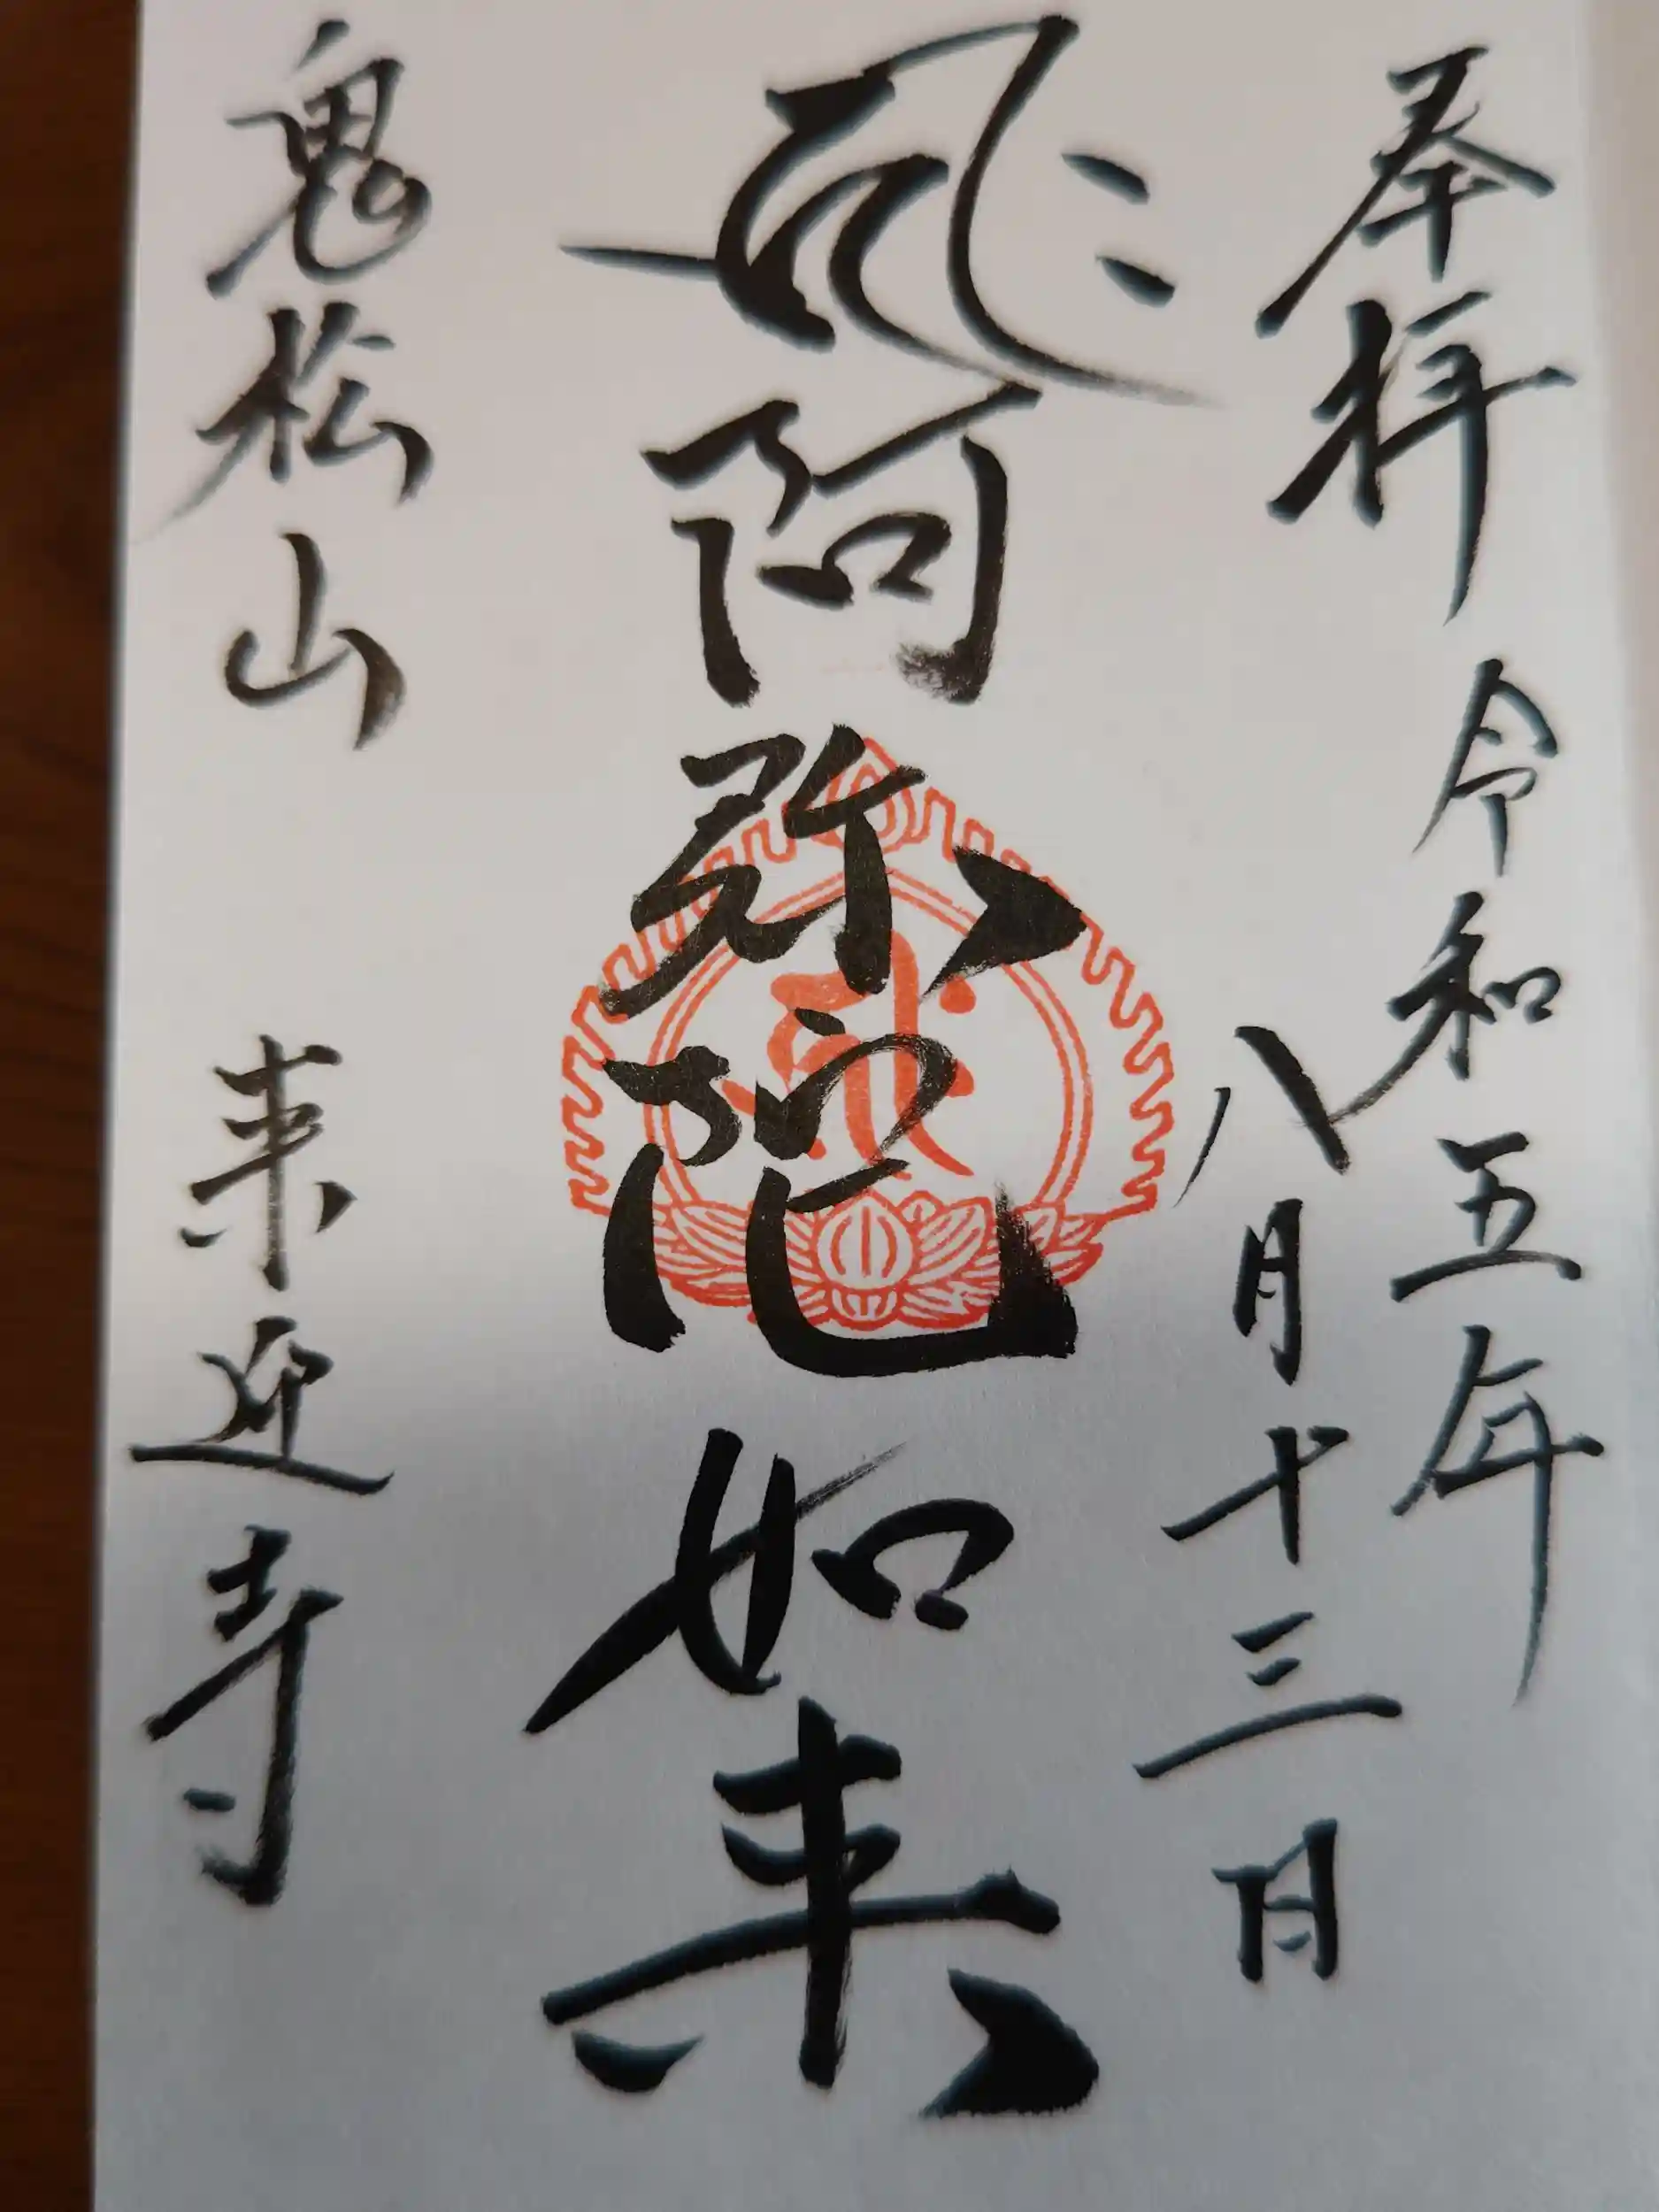 奉拝
令和五年
八月十三日
阿弥陀如来
鬼桧山
来迎寺